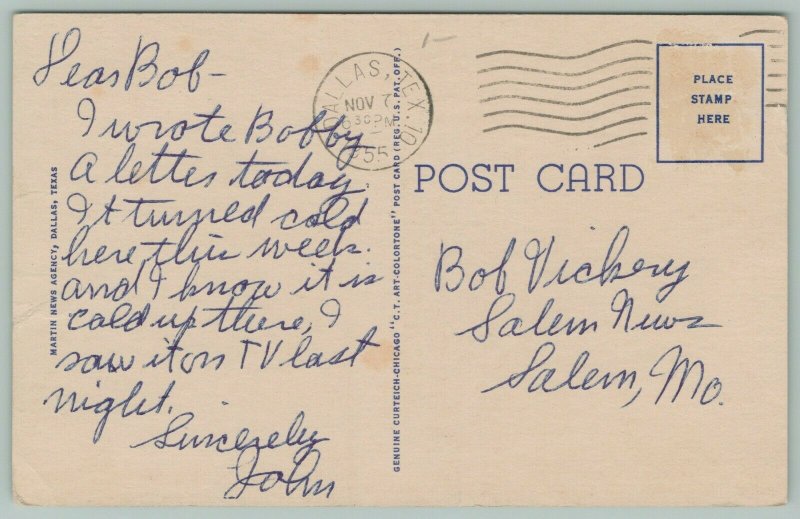 Dear Bob -
I wrote Bobby
a letter today.
It turned cold
here this week.
and I know it is
cold up there, I
saw it on TV last
night.
Sincerely
John
MARTIN NEWS AGENCY, DALLAS, TEXAS
DALLAS, TEX. 10
NOV 7
630 PM
1955
GENUINE CURTEICH-CHICAGO "C.T. ART-COLORTONE" POST CARD (REG. U.S. PAT. OFF.)
PLACE
STAMP
HERE
POST CARD
Bob Vickery
Salem News
Salem, Mo.